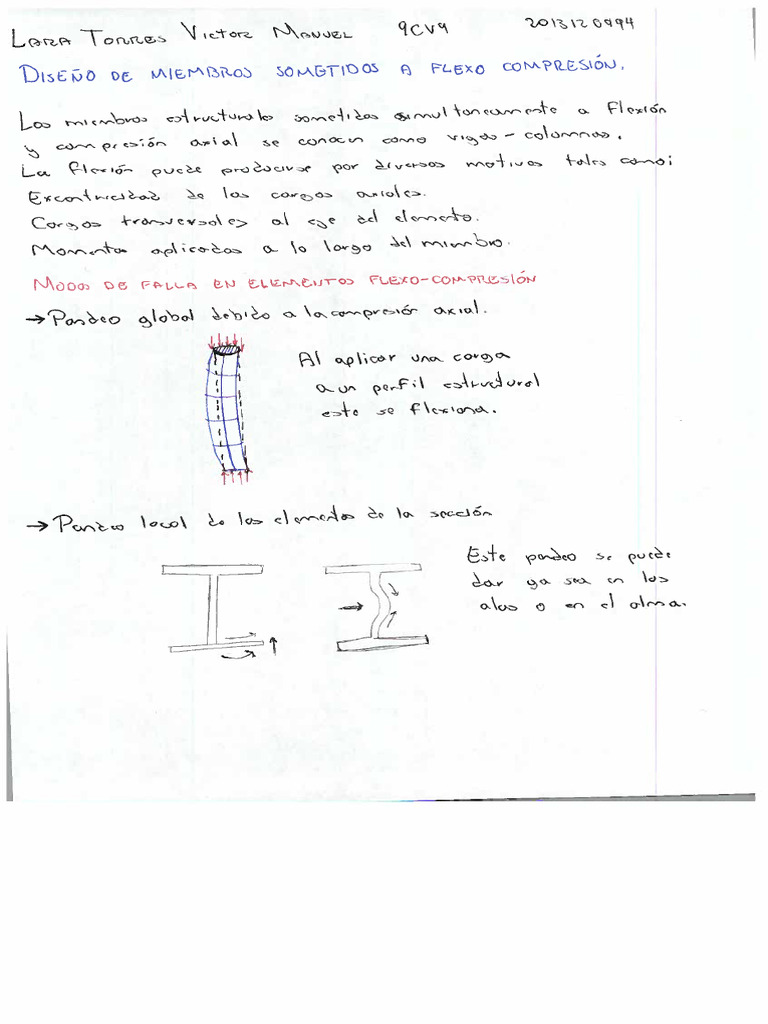 LARA TORRES VICTOR MANUEL 9CV9 2013120494
DISEÑO DE MIEMBROS SOMETIDOS A FLEXO COMPRESIÓN.
Los miembros estructurales sometidos simultaneamente a flexión
y compresión axial se conocen como vigas-columnas.
La flexión puede producirse por diversos motivos tales como:
Excentricidad de las cargas axiales.
Cargas transversales al eje del elemento.
Momentos aplicados a lo largo del miembro.
MODOS DE FALLA EN ELEMENTOS FLEXO-COMPRESIÓN
→ Pandeo global debido a la compresión axial.
Al aplicar una carga
a un perfil estructural
este se flexiona.
→ Pandeo local de los elementos de la sección
Este pandeo se puede
dar ya sea en los
alas o en el alma.